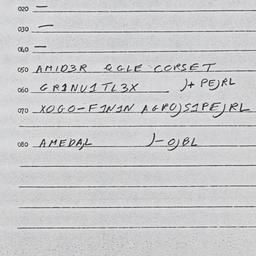 020 —
030 —
040 —
050 AMID3R QGLE CORSET
060 GRINU1TL3X )+ PE)RL
070 XOGO-FININ AGRO)S1PE)RL
080 AMEDA)L )-O)BL